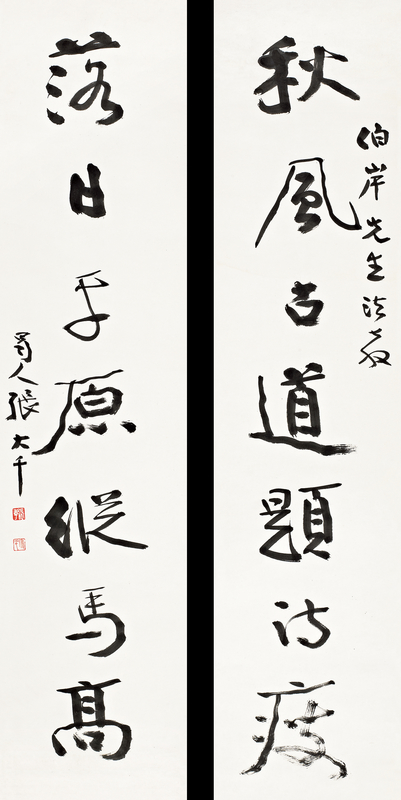 伯岸先生法教
秋風古道題詩瘦
落日平原縱馬高
蜀人張大千